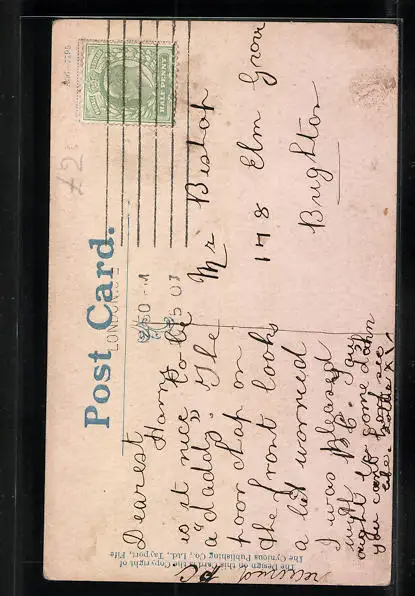 Post Card.
HALF PENNY
LONDON. S.E
2.30 PM
5 07
£2
The Design on this Card is the Copyright of
The Cynicus Publishing Co., Ltd., Tayport, Fife
Mr Bishop
178 Elm Grove
Brighton
Dearest
Harry
is it nice to be
a "daddy". The
poor chap on
the front looks
a bit worried
I was pleased
with P.C.
ought to come down
you can't
the bottle
received PC